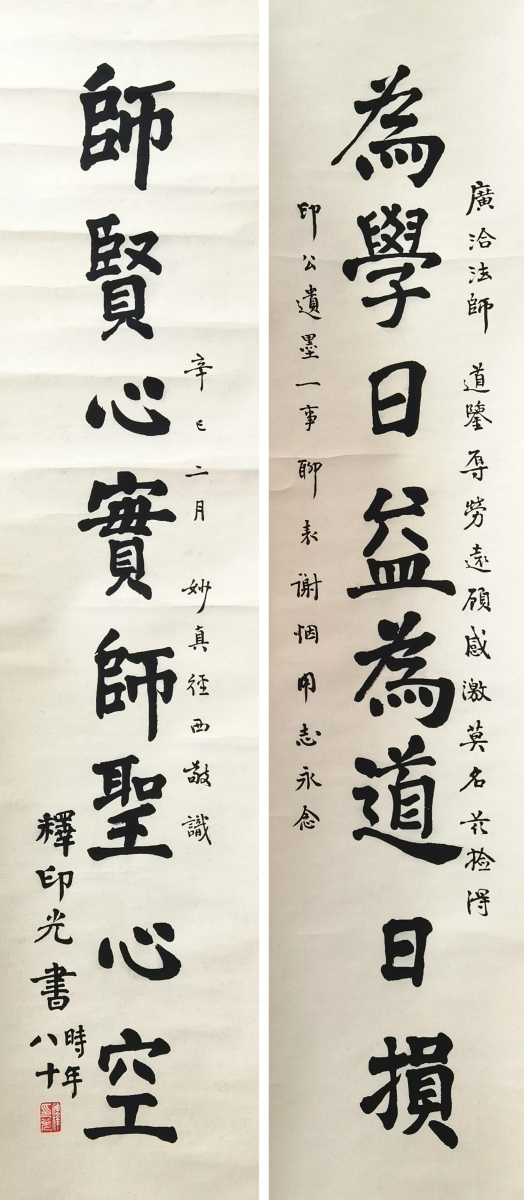 廣洽法師 道鑒辱勞遠顧感激莫名茲撿得
為學日益為道日損
印公遺墨一事聊表謝悃用志永念
辛巳二月 妙真徑西敬識
師賢心實師聖心空
釋印光書
時年
八十